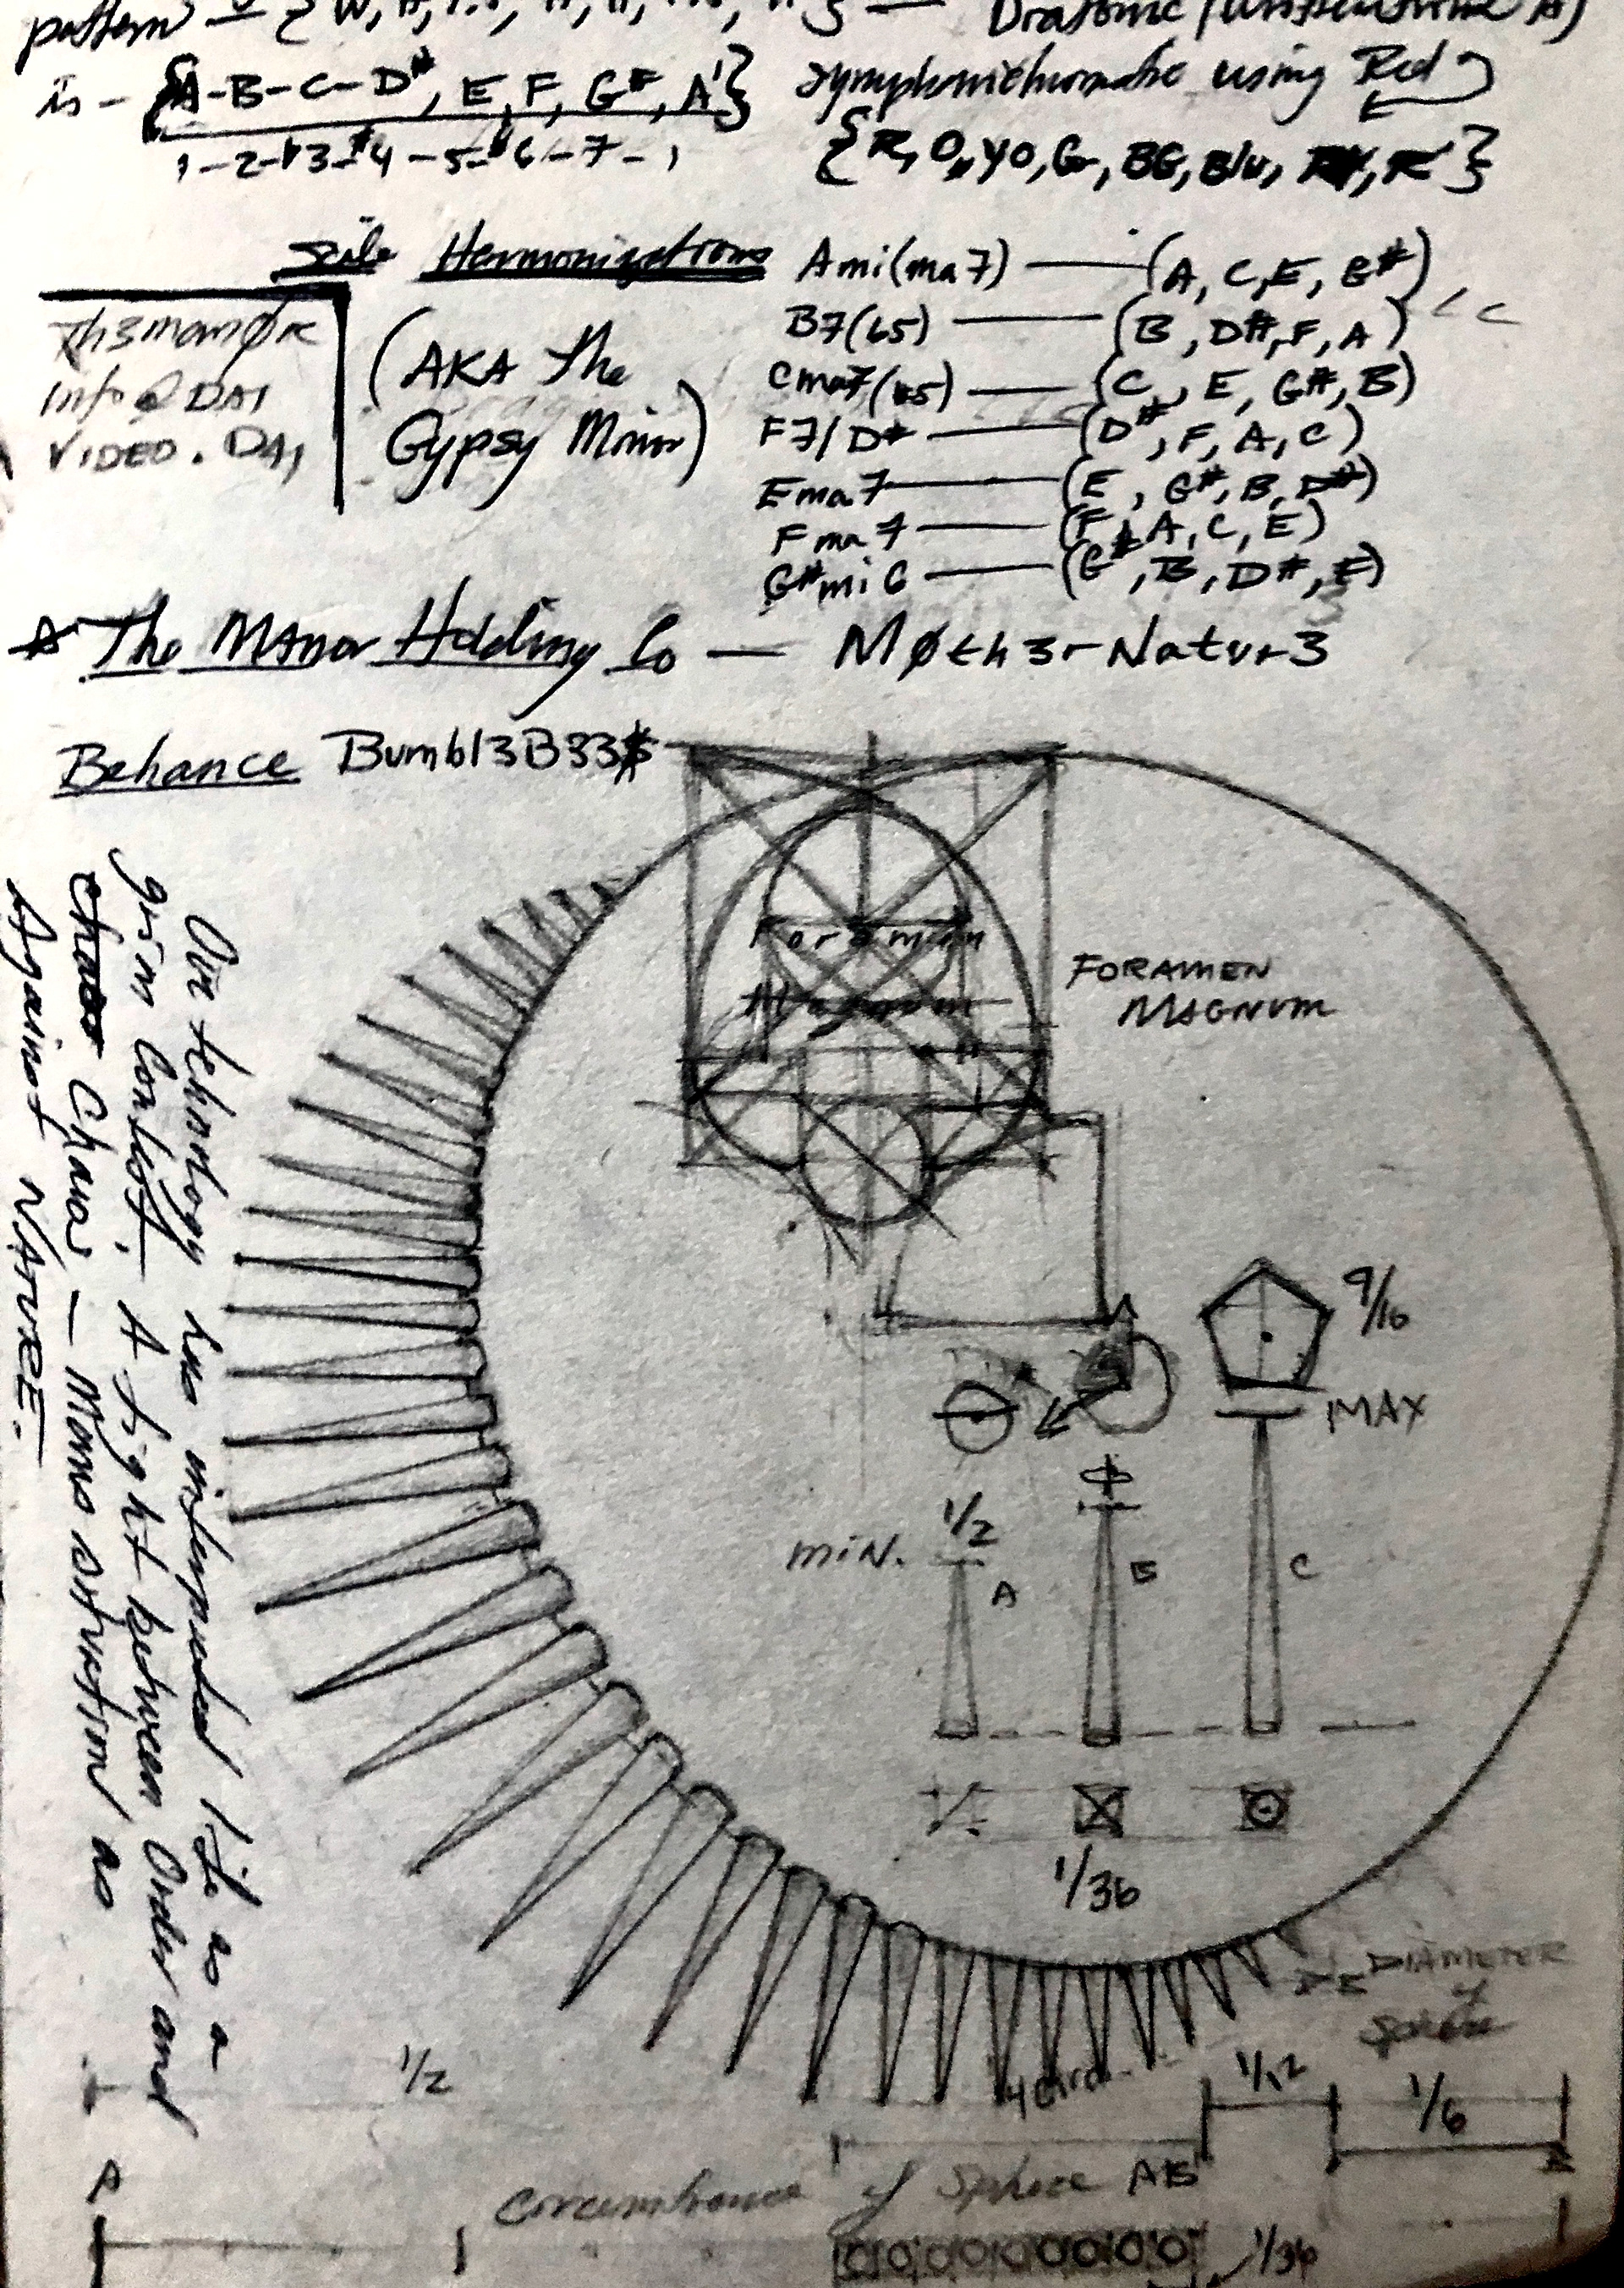 pattern
is - {A-B-C-D#, E, F, G#, A'} symphonichromatic using Red
1-2-b3-#4-5-b6-7-1
{R, O, YO, G, BG, Blu, R'}
Scale Harmonizations
(AKA the
Gypsy Minor)
Ami(ma7) — (A, C, E, G#)
B7(b5) — (B, D#, F, A)
Cma7(#5) — (C, E, G#, B)
F7/D# — (D#, F, A, C)
Ema7 — (E, G#, B, D#)
Fma7 — (F, A, C, E)
G#mi6 — (G#, B, D#, E)
Th3manØr
Info@DAI
VIDEO.DAI
The Manor Holding Co — MØth3r-Natur3
Behance Bumbl3B33$
Our technology has interpreted life as a
grim contest. A fight between Order and
Chaos — Mans intuition as
Against NATURE.
Foramen
Magnum
FORAMEN
MAGNUM
9/16
MAX
MIN.
1/2
A
B
C
1/36
DIAMETER
of
Sphere
1/2
1/12
1/6
A
B
Circumference of Sphere AB
1/36